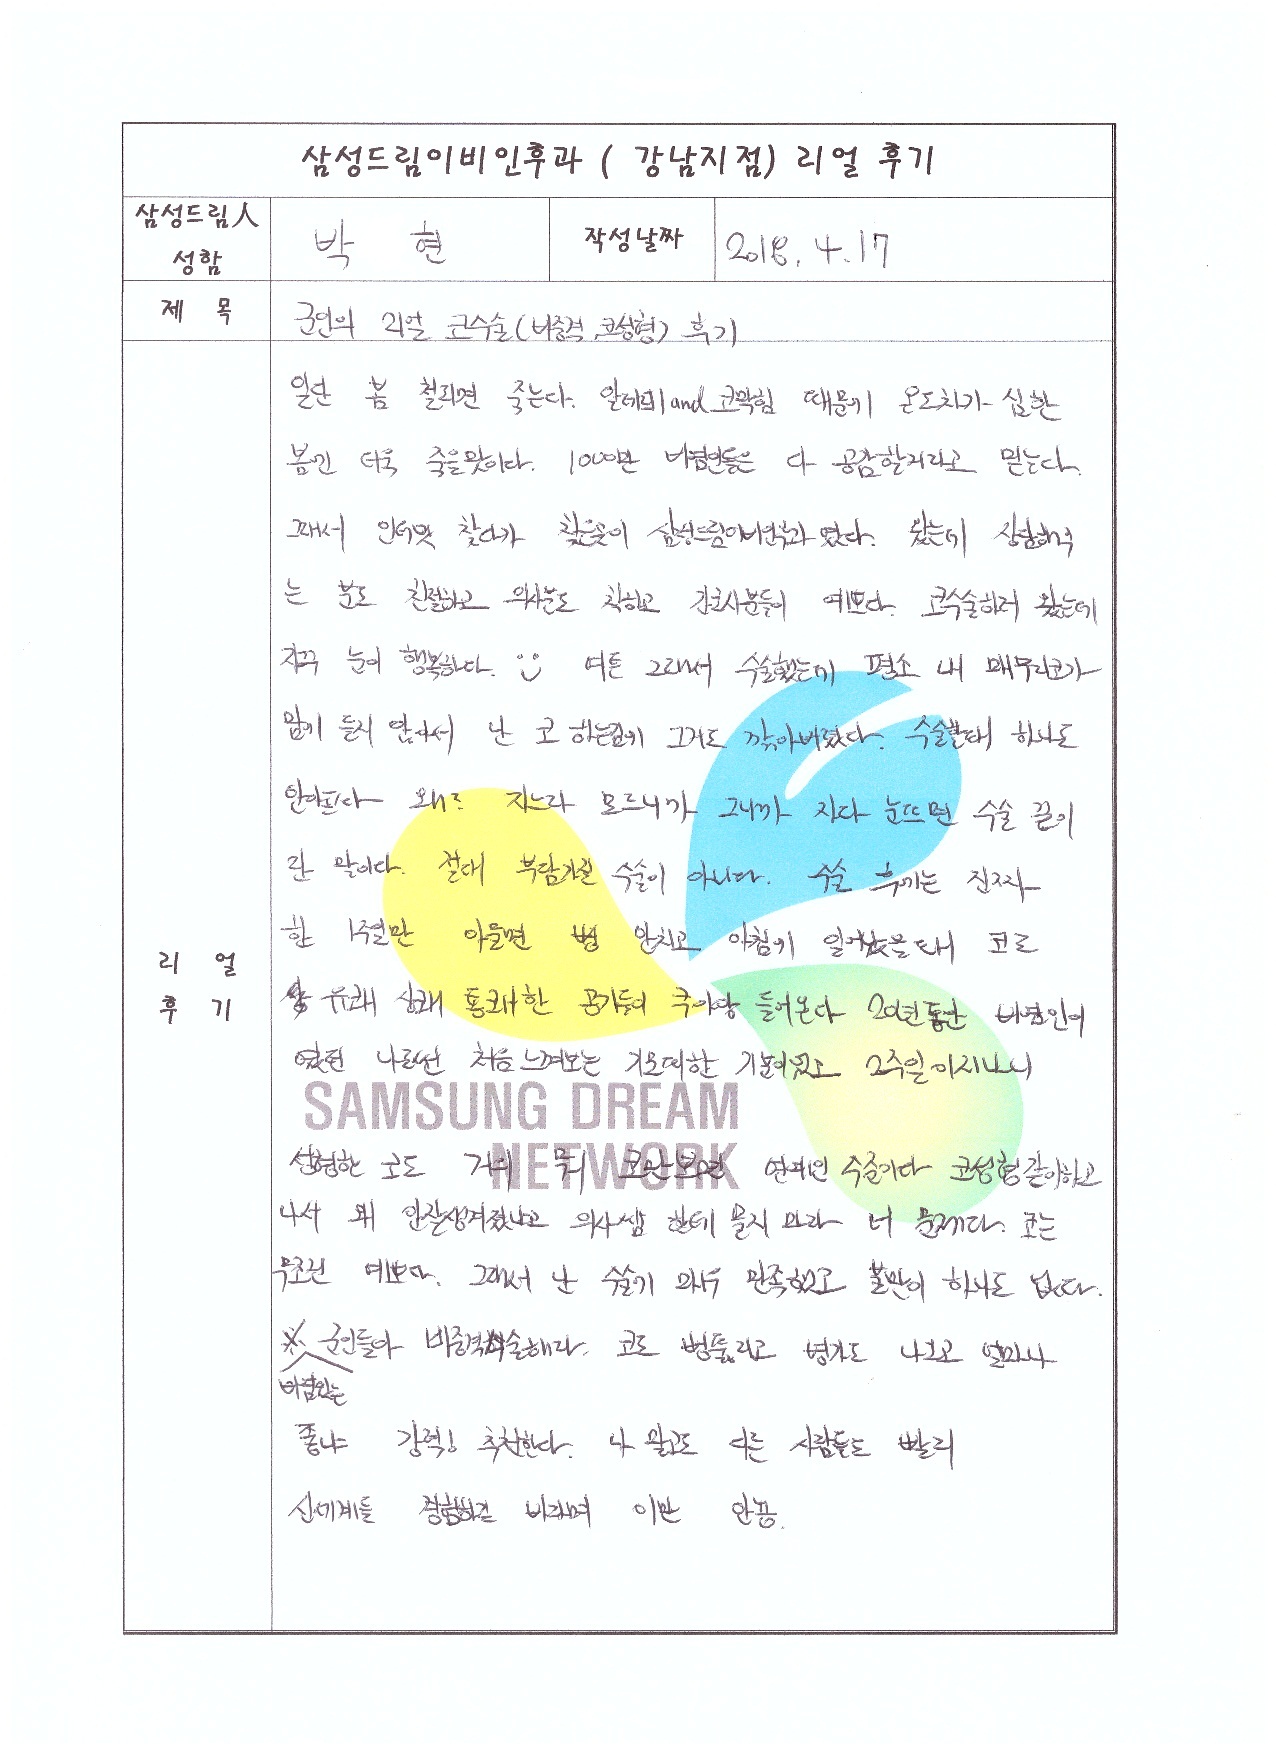 삼성드림이비인후과 ( 강남지점) 리얼 후기
삼성드림人
성함
박 현
작성날짜
2018. 4. 17
제 목
군인의 리얼 코수술(비중격 코성형) 후기
리 얼
후 기
일단 봄 철되면 죽는다. 알레르기and코막힘 때문에 온도차가 심한
봄인 더욱 죽을맛이다. 1000만 비염인들은 다 공감할거라고 믿는다.
그래서 인터넷 찾다가 찾은곳이 삼성드림이비인후과 였다. 왔는데 상담해주
는 분도 친절하고 의사분도 착하고 간호사분들이 예쁘다. 코수술하러 왔는데
자꾸 눈이 행복하다. 여튼 그래서 수술했는데 평소 내 매부리코가
맘에 들지 않아서 난 코 하는김에 그거도 깎아버렸다. 수술할때 하나도
안아프다 왜냐 자느라 모르니까 그니까 자다 눈뜨면 수술 끝이
란 말이다. 절대 부담가질 수술이 아니다. 수술 후기는 진짜
한 1주일만 아물면 뻥 안치고 아침에 일어났을때 코로
유쾌 상쾌 통쾌한 공기들이 쿠아앙 들어온다 20년동안 비염인이
였던 나로썬 처음느껴보는 기분이었고 2주일이지나니
SAMSUNG DREAM
NETWORK
성형한 코도 거의 뭐 코만보면 연예인 수준이다 코성형같이하고
나서 왜 안잘생겨졌냐고 의사쌤 한테 묻지 마라 너 문제다. 코는
무조건 예쁘다. 그래서 난 수술에 매우 만족했고 불만이 하나도 없다.
※ 군인들아 비중격수술해라. 코도 뻥뚫리고 병가도 나오고 얼마나
비염있는
좋냐 강력! 추천한다. 나 말고도 다른 사람들도 빨리
신세계를 경험하길 바라며 이만 안뇽.